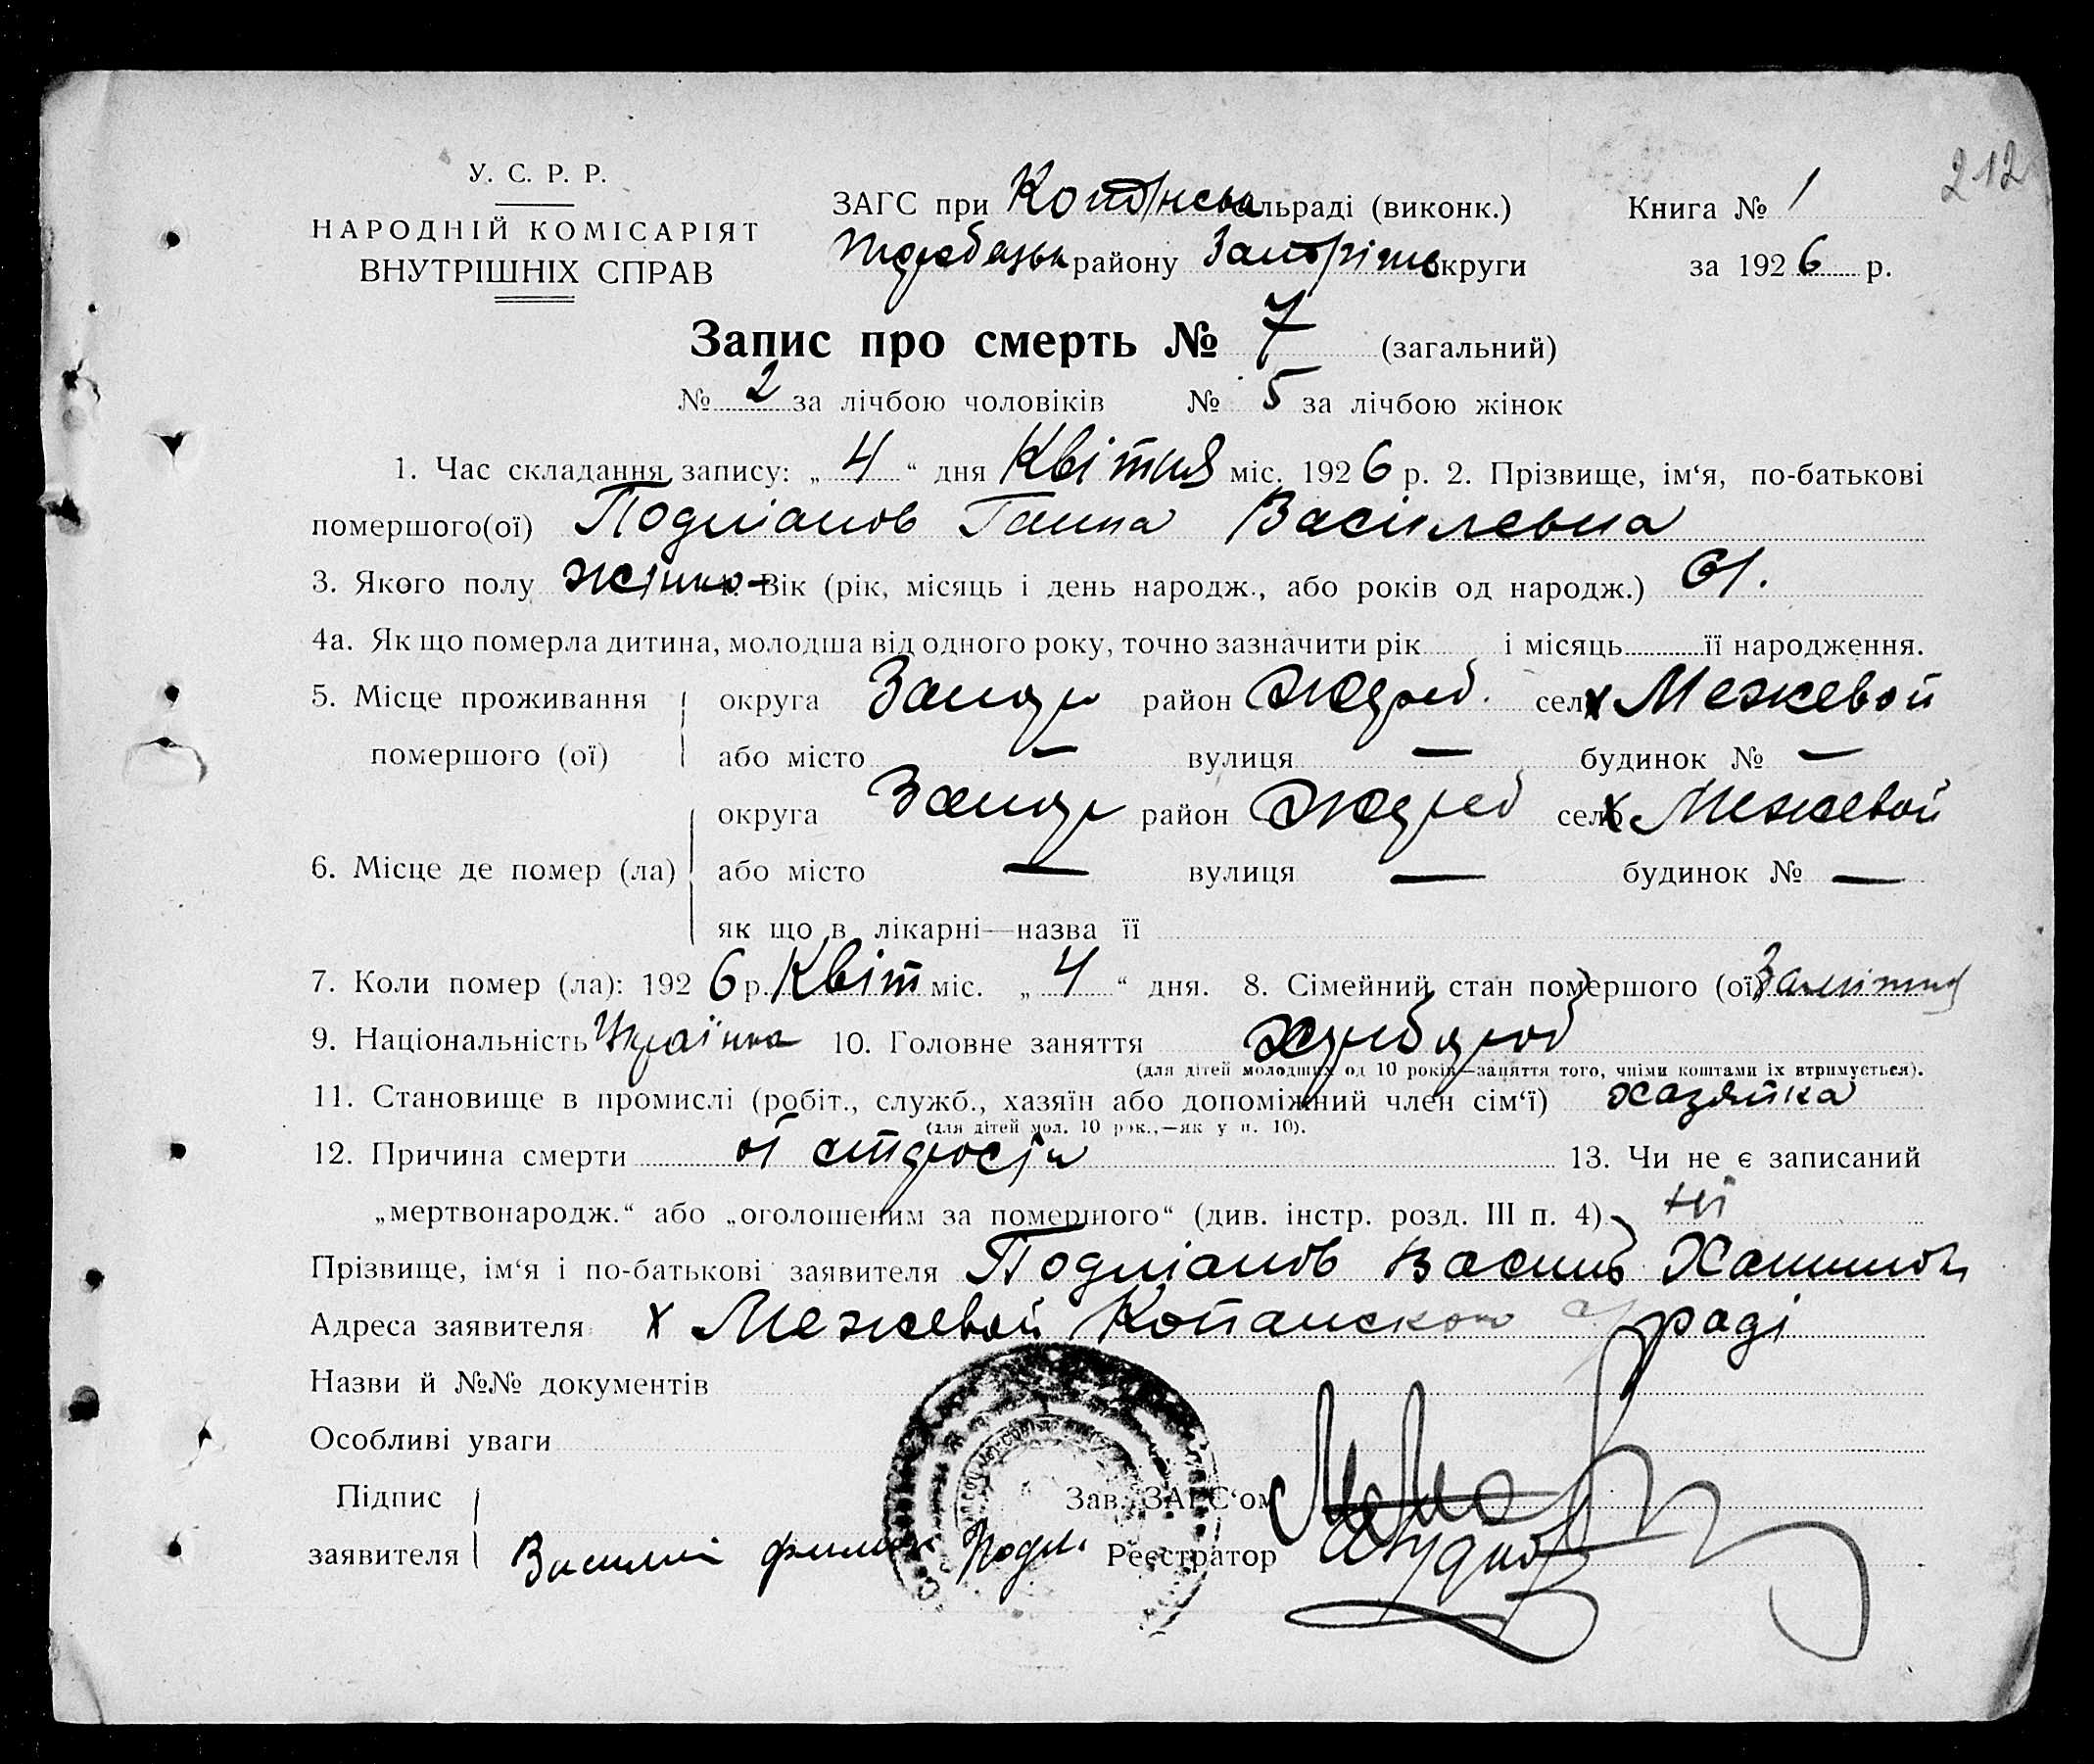 212
У. С. Р. Р.
НАРОДНІЙ КОМІСАРІЯТ
ВНУТРІШНІХ СПРАВ
ЗАГС при льраді (виконк.)
району округи
Книга № 1
за 1926 р.
Запис про смерть № 7 (загальний)
№ 2 за лічбою чоловіків № 5 за лічбою жінок
1. Час складання запису: „ 4 “ дня Квітня міс. 1926 р. 2. Прізвище, ім‘я, по-батькові
помершого(ої) Ганна Василевна
3. Якого полу Вік (рік, місяць і день народж., або років од народж.) 61.
4а. Як що померла дитина, молодша від одного року, точно зазначити рік і місяць її народження.
5. Місце проживання округа район село х Межевой
помершого (ої) або місто — вулиця — будинок № —
округа район село х Межевой
6. Місце де помер (ла) або місто — вулиця — будинок № —
як що в лікарні—назва її
7. Коли помер (ла): 1926 р. Квіт міс. „ 4 “ дня. 8. Сімейний стан помершого (ої)
9. Національність Українка 10. Головне заняття хлібороб
(для дітей молодших од 10 років—заняття того, чиїми коштами їх втримується).
11. Становище в промислі (робіт., служб., хазяїн або допоміжний член сім‘ї) хазяйка
(для дітей мол. 10 рок.,—як у п. 10).
12. Причина смерти от старости 13. Чи не є записаний
„мертвонародж.“ або „оголошеним за помершого“ (див. інстр. розд. III п. 4) ні
Прізвище, ім‘я і по-батькові заявителя
Адреса заявителя х Межевой Копанскою раді
Назви й №№ документів
Особливі уваги
Підпис
заявителя
Зав. ЗАГС‘ом
Реєстратор